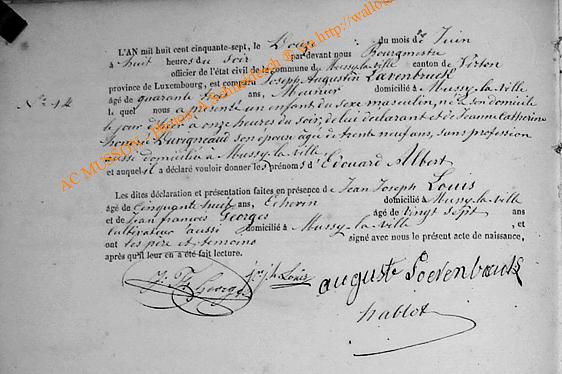 L'AN mil huit cent cinquante-sept, le Douze du mois de Juin
à huit heures du soir par devant nous Bourgmestre
officier de l'état civil de la commune de Mussy-la-ville canton de Virton
province de Luxembourg, est comparu Joseph Augustin
N° 14
âgé de quarante ans, Meunier domicilié à Mussy-la-ville
le quel nous a présenté un enfant du sexe masculin, né à son domicile
le jour d'hier à onze heures du soir, de lui déclarant et de Jeanne Catherine
son épouse âgée de trente neuf ans, sans profession
aussi domiciliée à Mussy-la-ville
et auquel il a déclaré vouloir donner les prénoms d'Edouard Albert
Les dites déclaration et présentation faites en présence de Jean Joseph Louis
âgé de Cinquante huit ans, Echevin domicilié à Mussy-la-ville
et de Jean françois Georges âgé de vingt sept ans
cultivateur aussi domicilié à Mussy-la-ville, et
ont les père et témoins signé avec nous le présent acte de naissance,
après qu'il leur en a été fait lecture.
J. F. Georges
jos. jh Louis
auguste
hablot
AC MUSSON - Photos A. Schonckert © So http://wallo